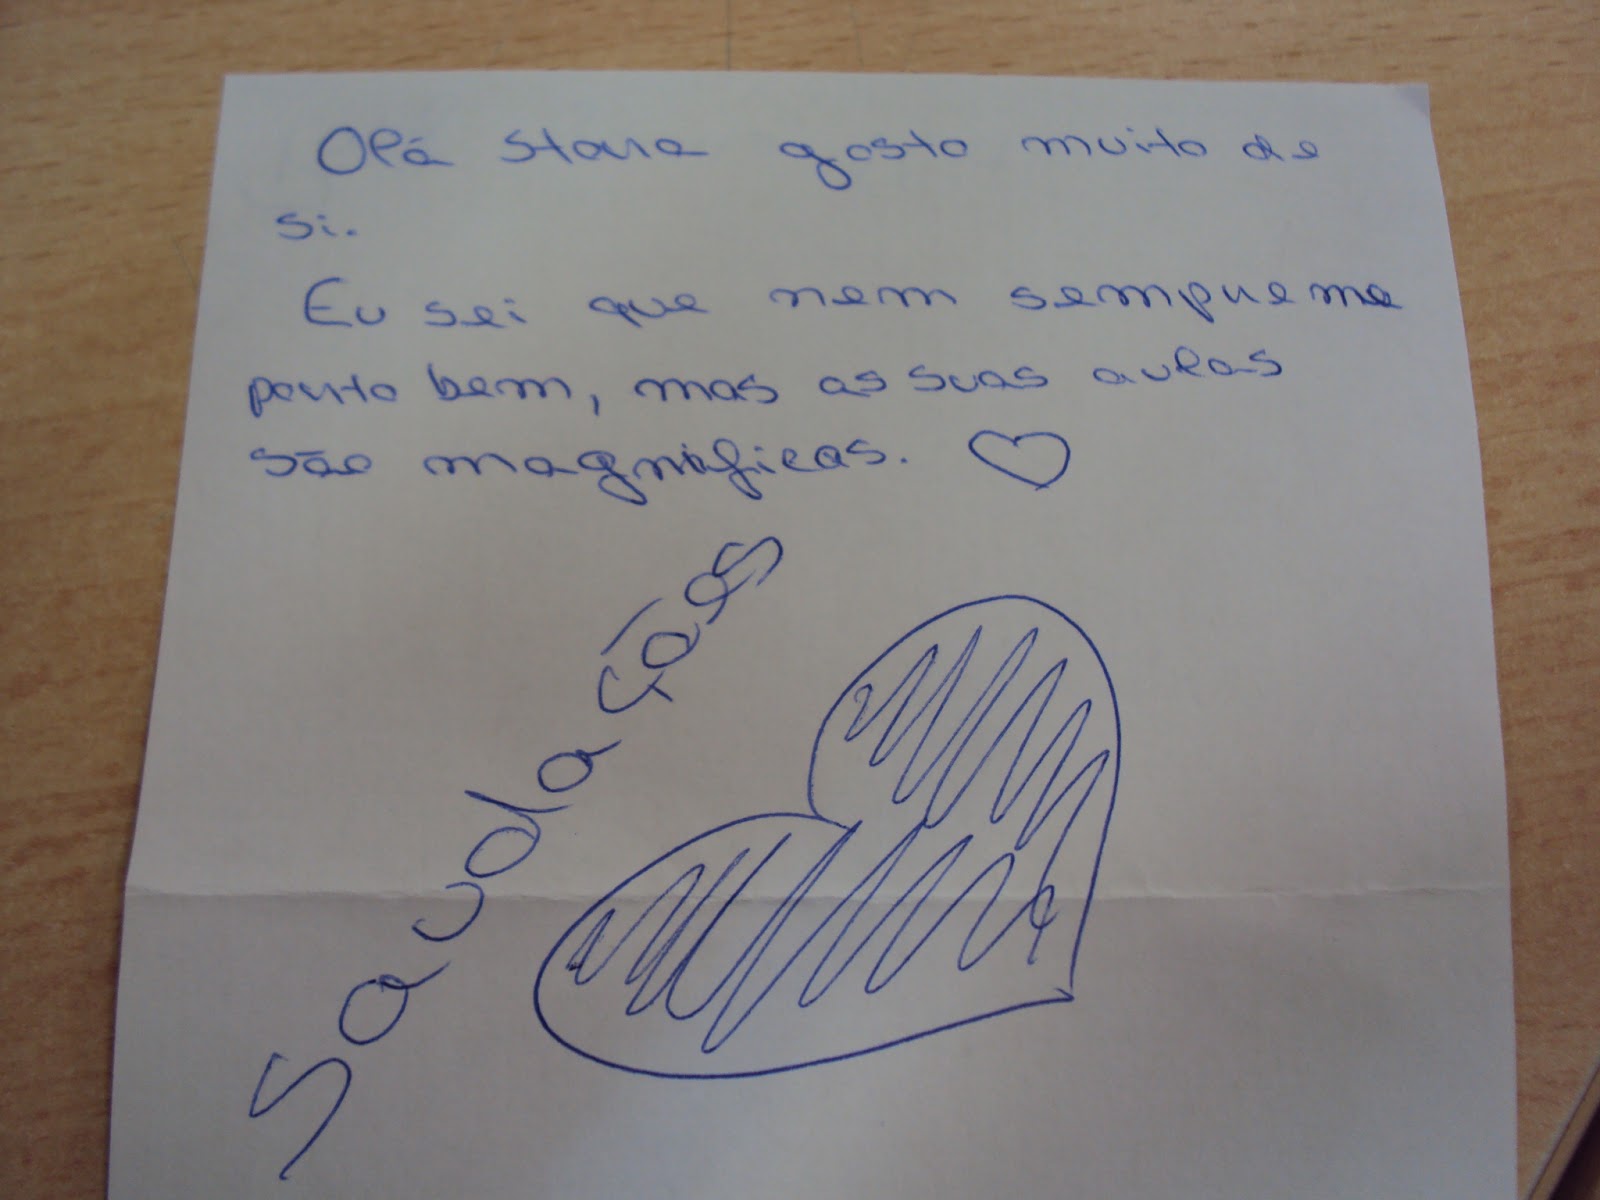 Olá stora gosto muito de
si.
Eu sei que nem sempre me
porto bem, mas as suas aulas
são magníficas.
Saudaçõas